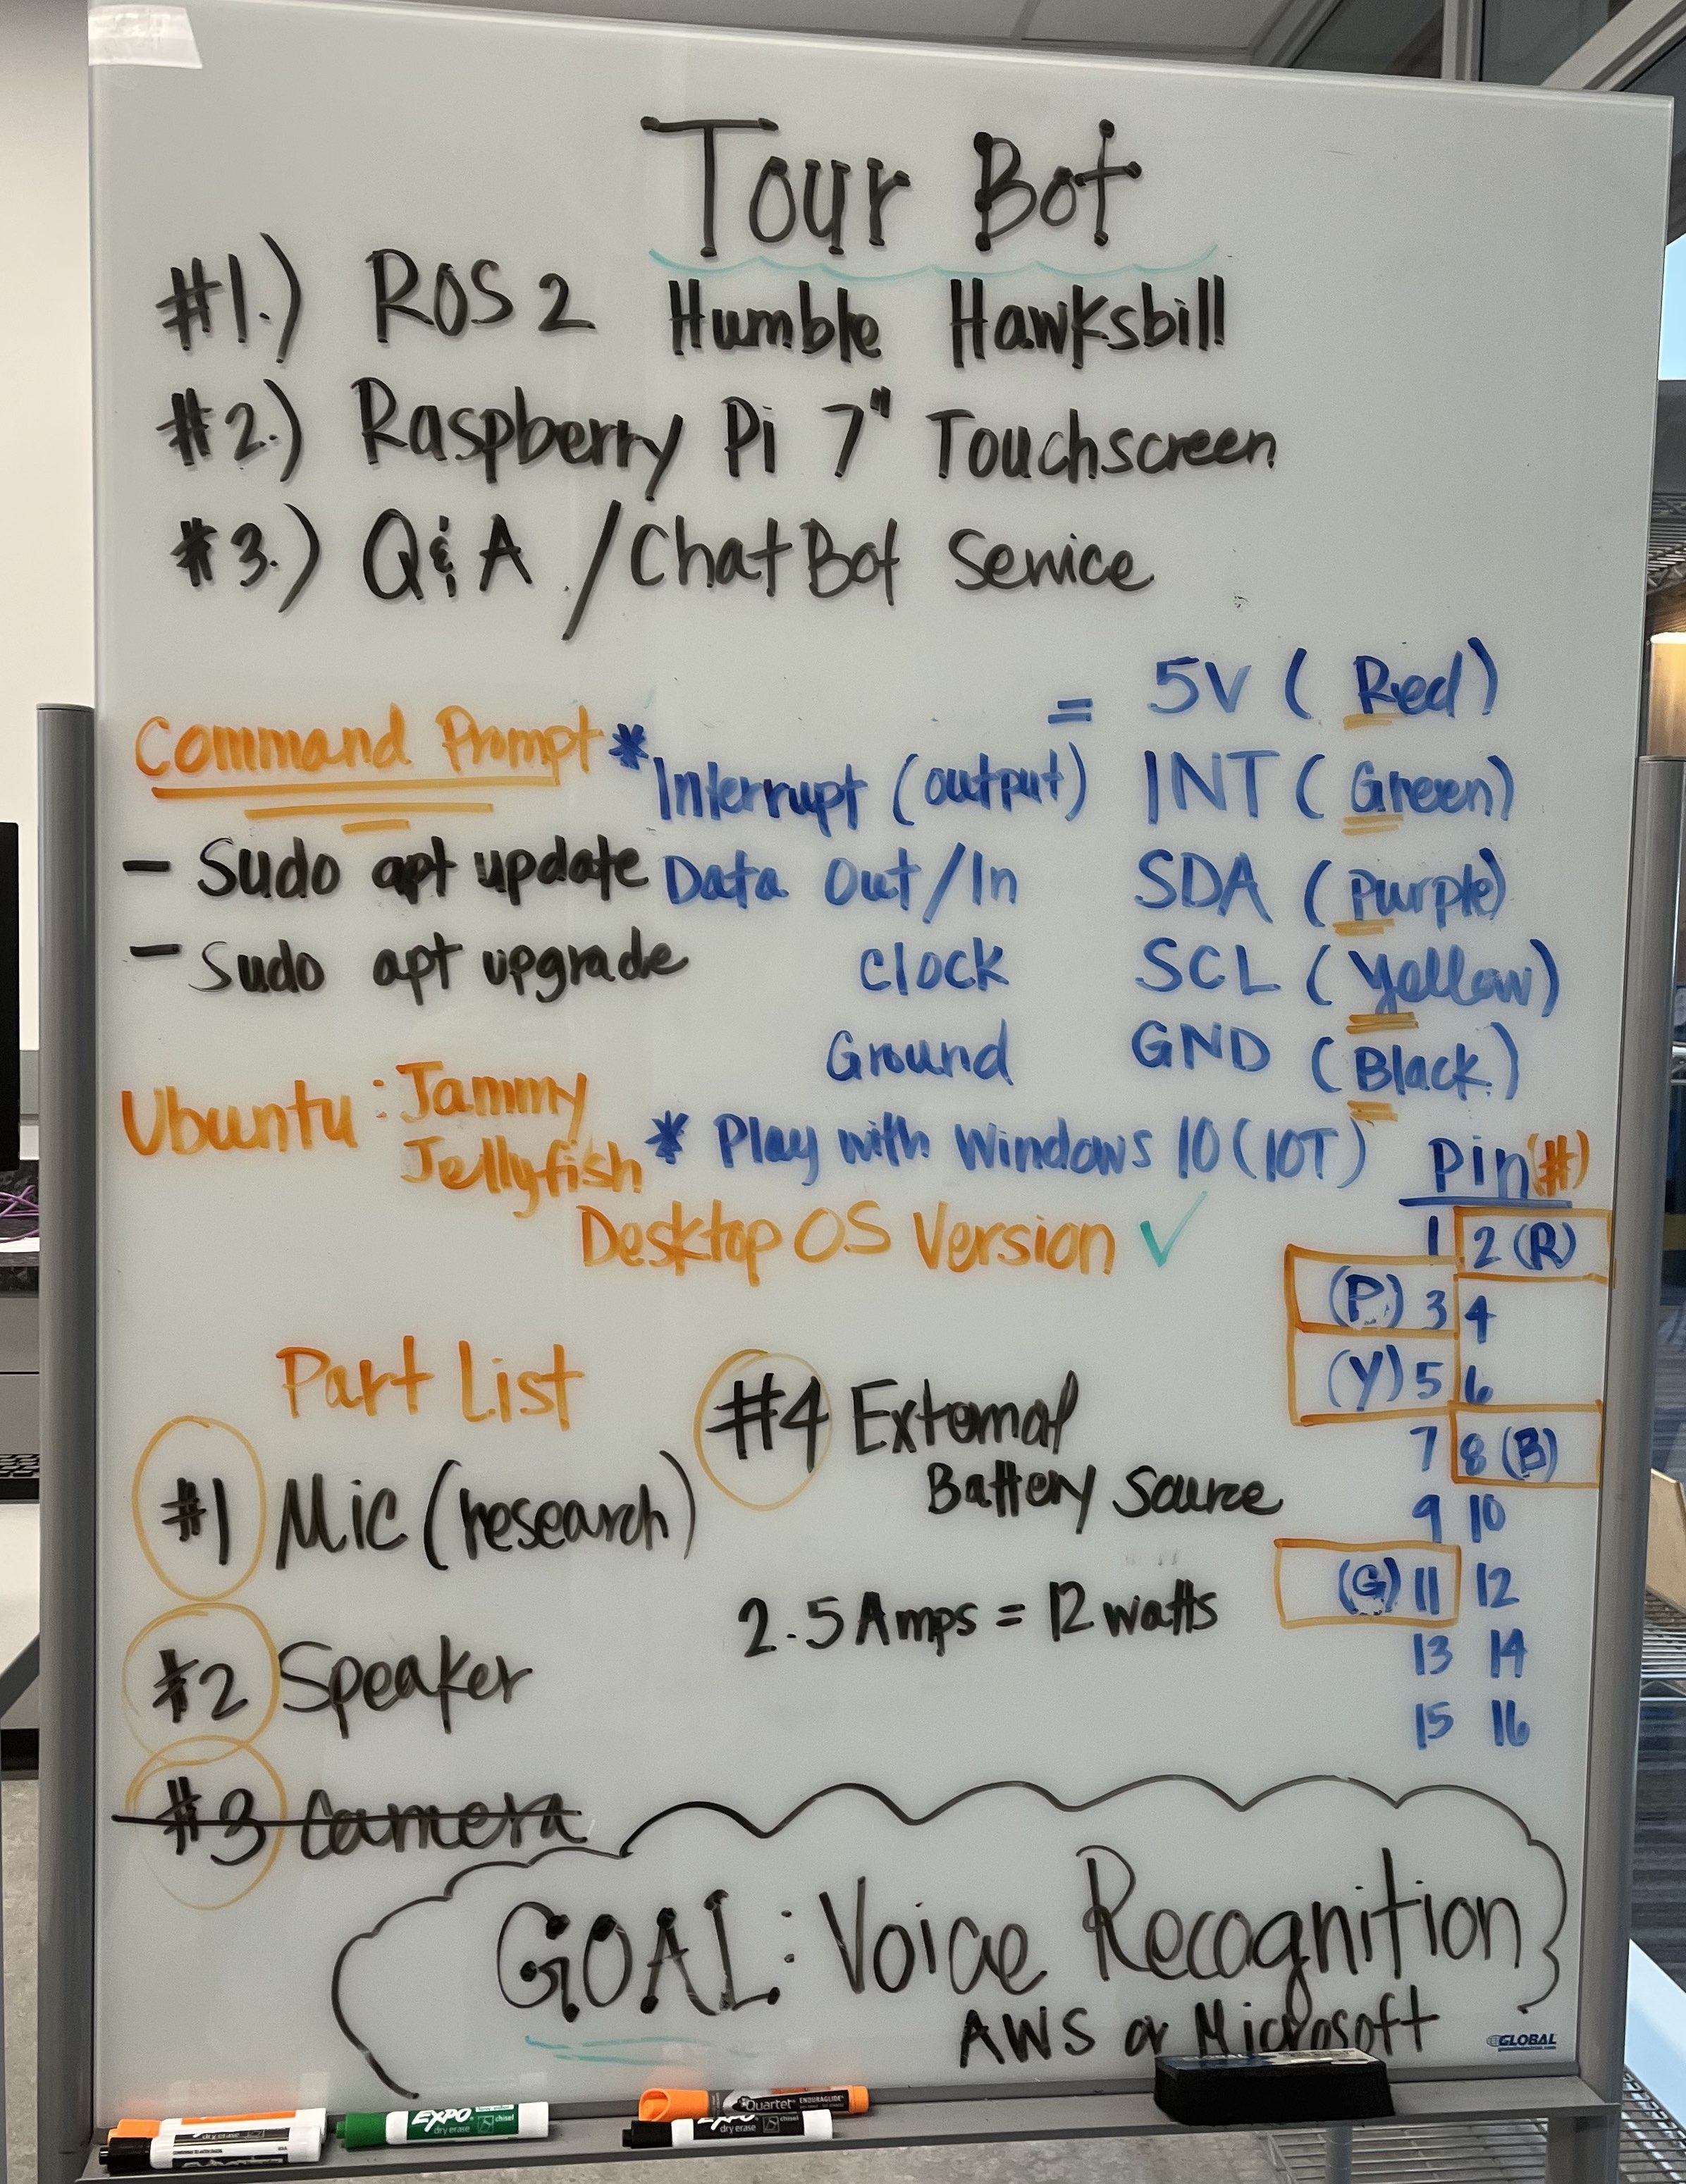 Tour Bot
#1.) ROS 2 Humble Hawksbill
#2.) Raspberry Pi 7" Touchscreen
#3.) Q&A / ChatBot Service
Command Prompt
- Sudo apt update
- Sudo apt upgrade
Ubuntu: Jammy
Jellyfish
* = 5V (Red)
Interrupt (output) INT (Green)
Data Out/In SDA (Purple)
Clock SCL (Yellow)
Ground GND (Black)
* Play with Windows 10 (IOT)
Desktop OS Version ✓
Pin(#)
1 2 (R)
(P) 3 4
(Y) 5 6
7 8 (B)
9 10
(G) 11 12
13 14
15 16
Part List
#1 Mic (research)
#2 Speaker
#3 Camera
#4 External
Battery Source
2.5 Amps = 12 watts
GOAL: Voice Recognition
AWS or Microsoft
GLOBAL
EXPO
dry erase
chisel
Quartet
ENDURAGLIDE
EXPO
dry erase
chisel